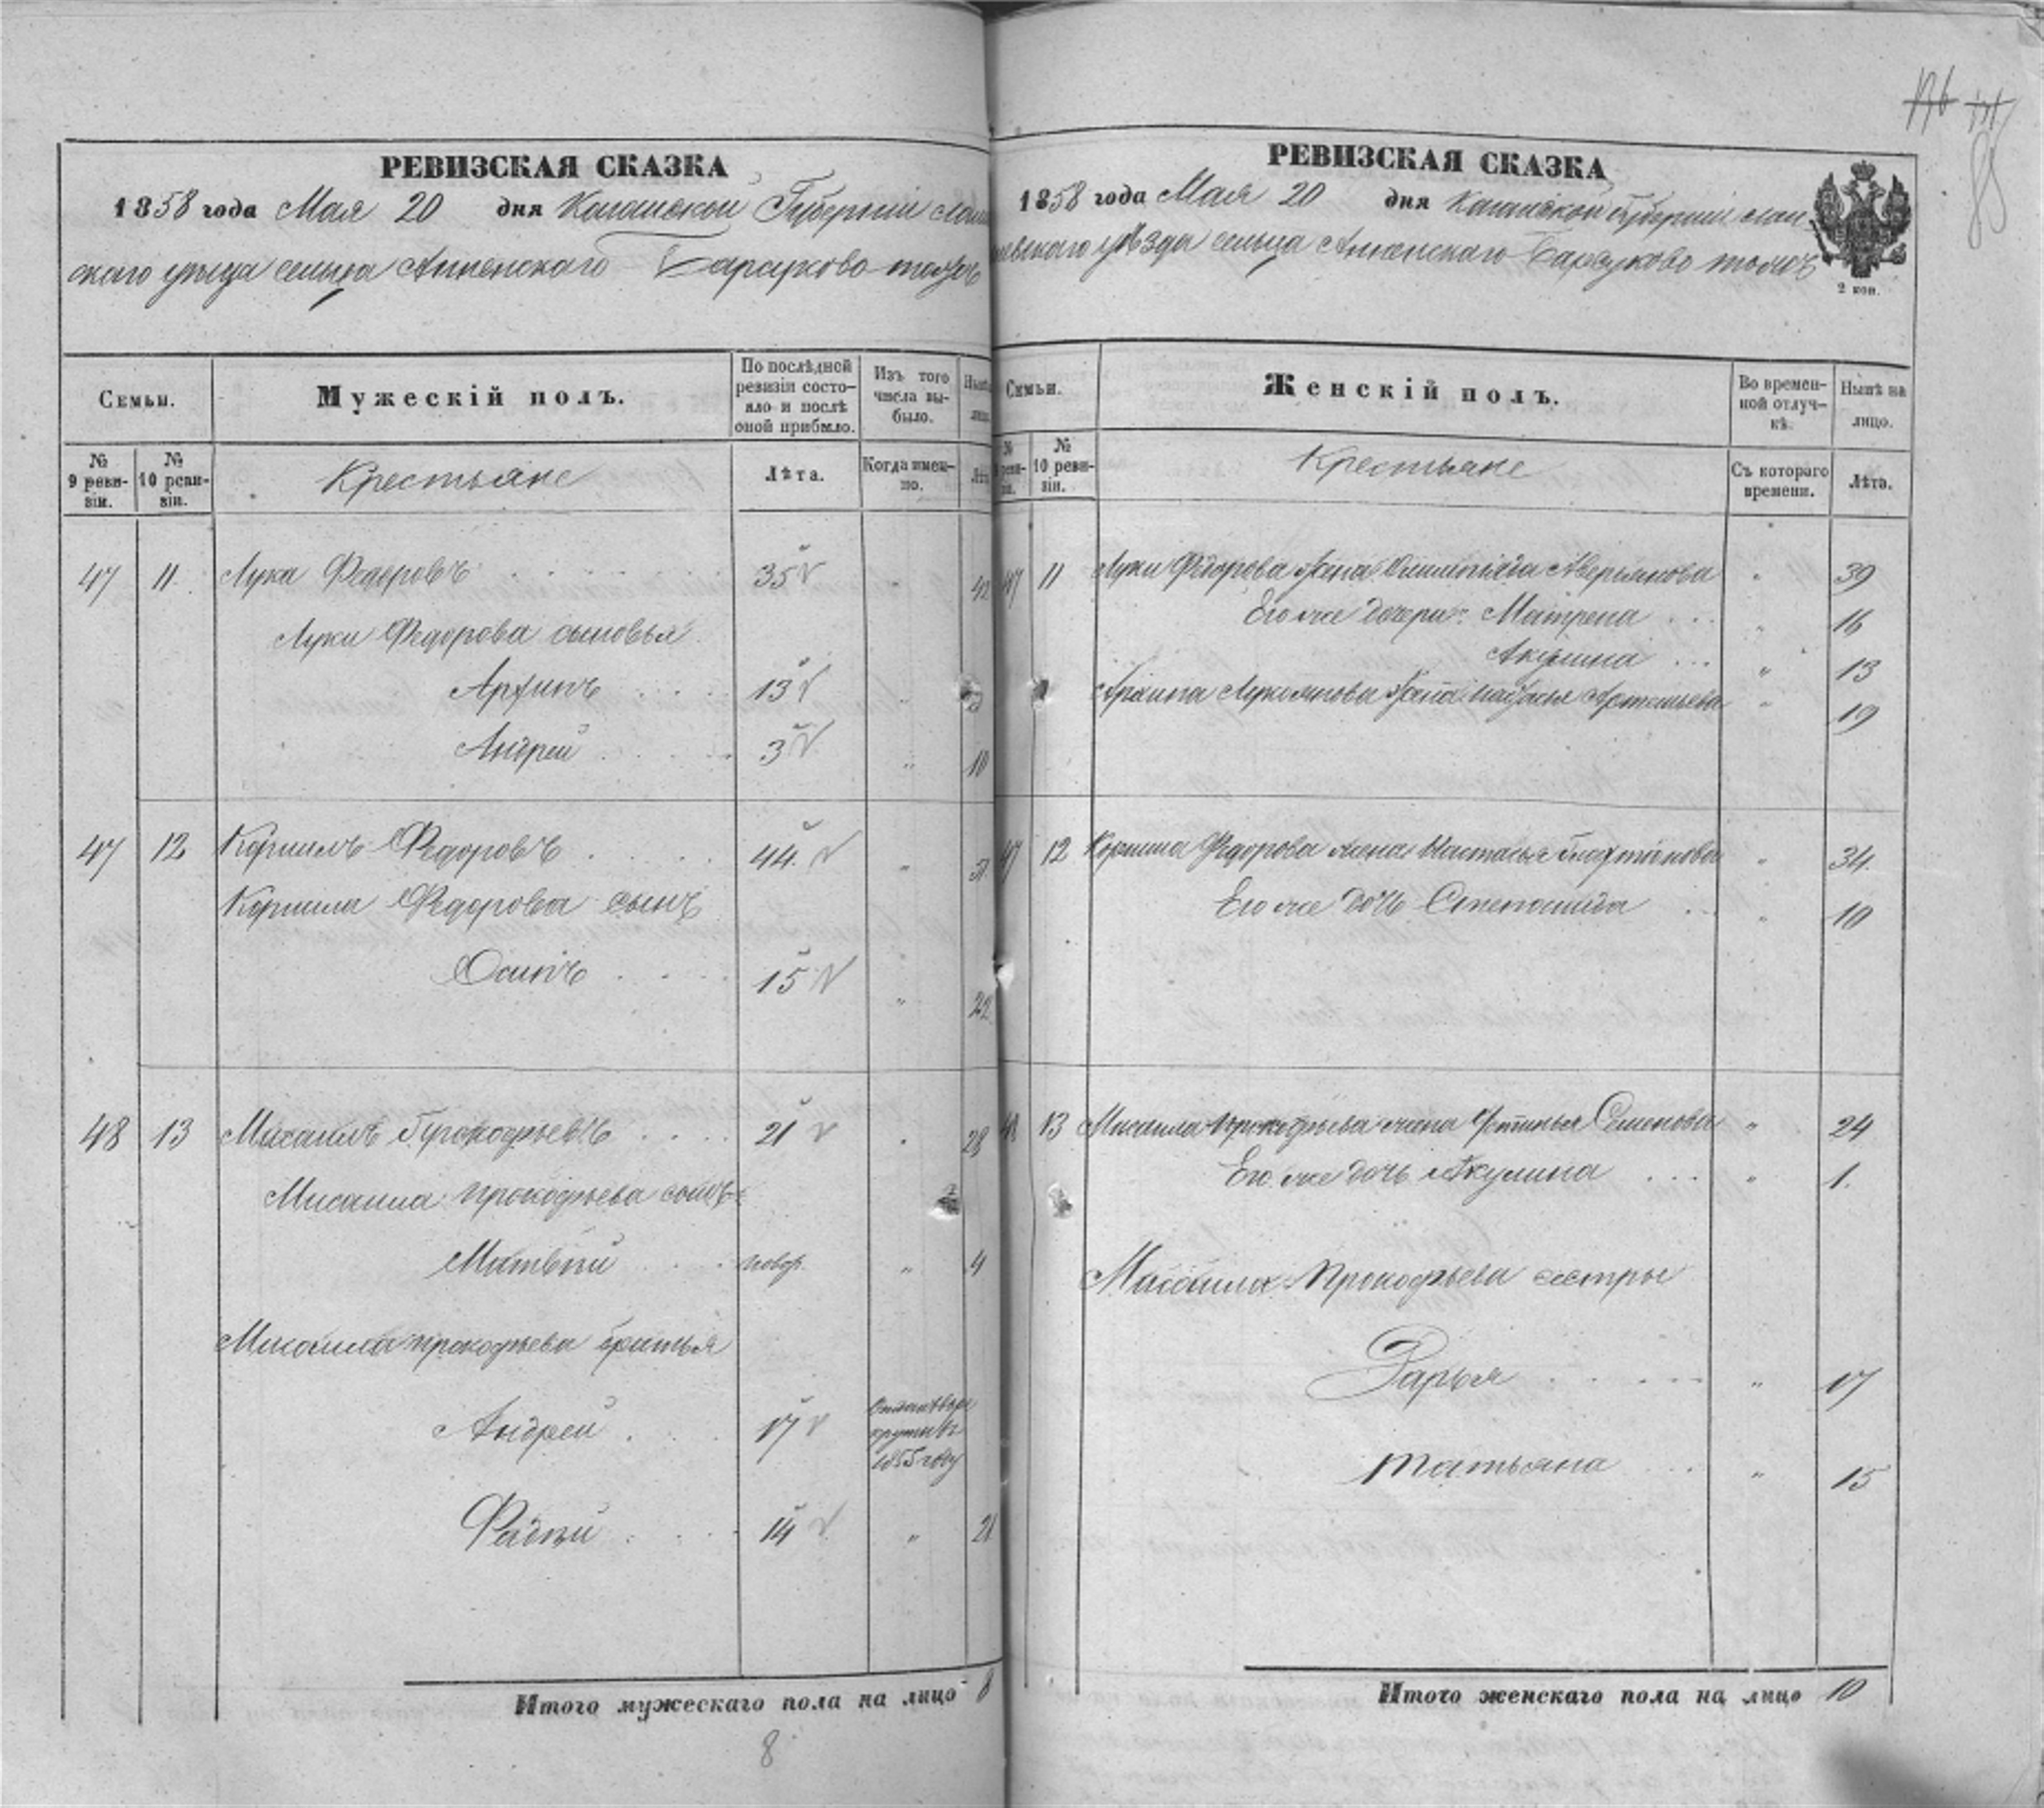 РЕВИЗСКАЯ СКАЗКА
1858 года Мая 20 дня Казанской Губерніи Лаи
скаго уезда сельца Анненскаго Барсуково тожъ
Семьи.
Мужескій полъ.
По послѣдней ревизіи состояло и послѣ оной прибыло.
Изъ того числа выбыло.
Нынѣ
лицо
№ 9 ревизіи.
№ 10 ревизіи.
Крестьяне
Лѣта.
Когда именно.
Лѣта
47 11. Лука Федоровъ 35 " 42
Луки Федорова сыновья
Архипъ 13 "
Андрей 3 " 10
47 12 Корнилъ Федоровъ 44. " 51
Корнила Федорова сынъ
Осипъ 15 " 22
48 13 Мисаилъ Прокофьевъ 21 " 28
Мисаила Прокофьева сынъ
Матвѣй новор. " 4
Мисаила Прокофьева братья
Андрей 17
1855 году
Фадѣй 14 " 21
Итого мужескаго пола на лицо 8
8
136
85
РЕВИЗСКАЯ СКАЗКА
1858 года Мая 20 дня Казанской Губерніи Лаи
шевскаго уѣзда сельца Анненскаго Барсуково тожъ
2 коп.
Семьи.
Женскій полъ.
Во временной отлучкѣ.
Нынѣ на лицо.
№ ревизіи.
№ 10 ревизіи.
Крестьяне
Съ котораго времени.
Лѣта.
47 11 Луки Федорова жена Аверьянова " 39
Его же дочери: Матрена " 16
Акулина " 13
Лукоянова жена Артемьева " 19
47 12 Корнила Федорова жена Настасья " 34.
Его же дочь Степанида " 10
48 13 Мисаила Прокофьева жена Устинья Семенова " 24
Его же дочь Акулина " 1.
Мисаила Прокофьева сестры
Дарья " 17
Татьяна " 15
Итого женскаго пола на лицо 10